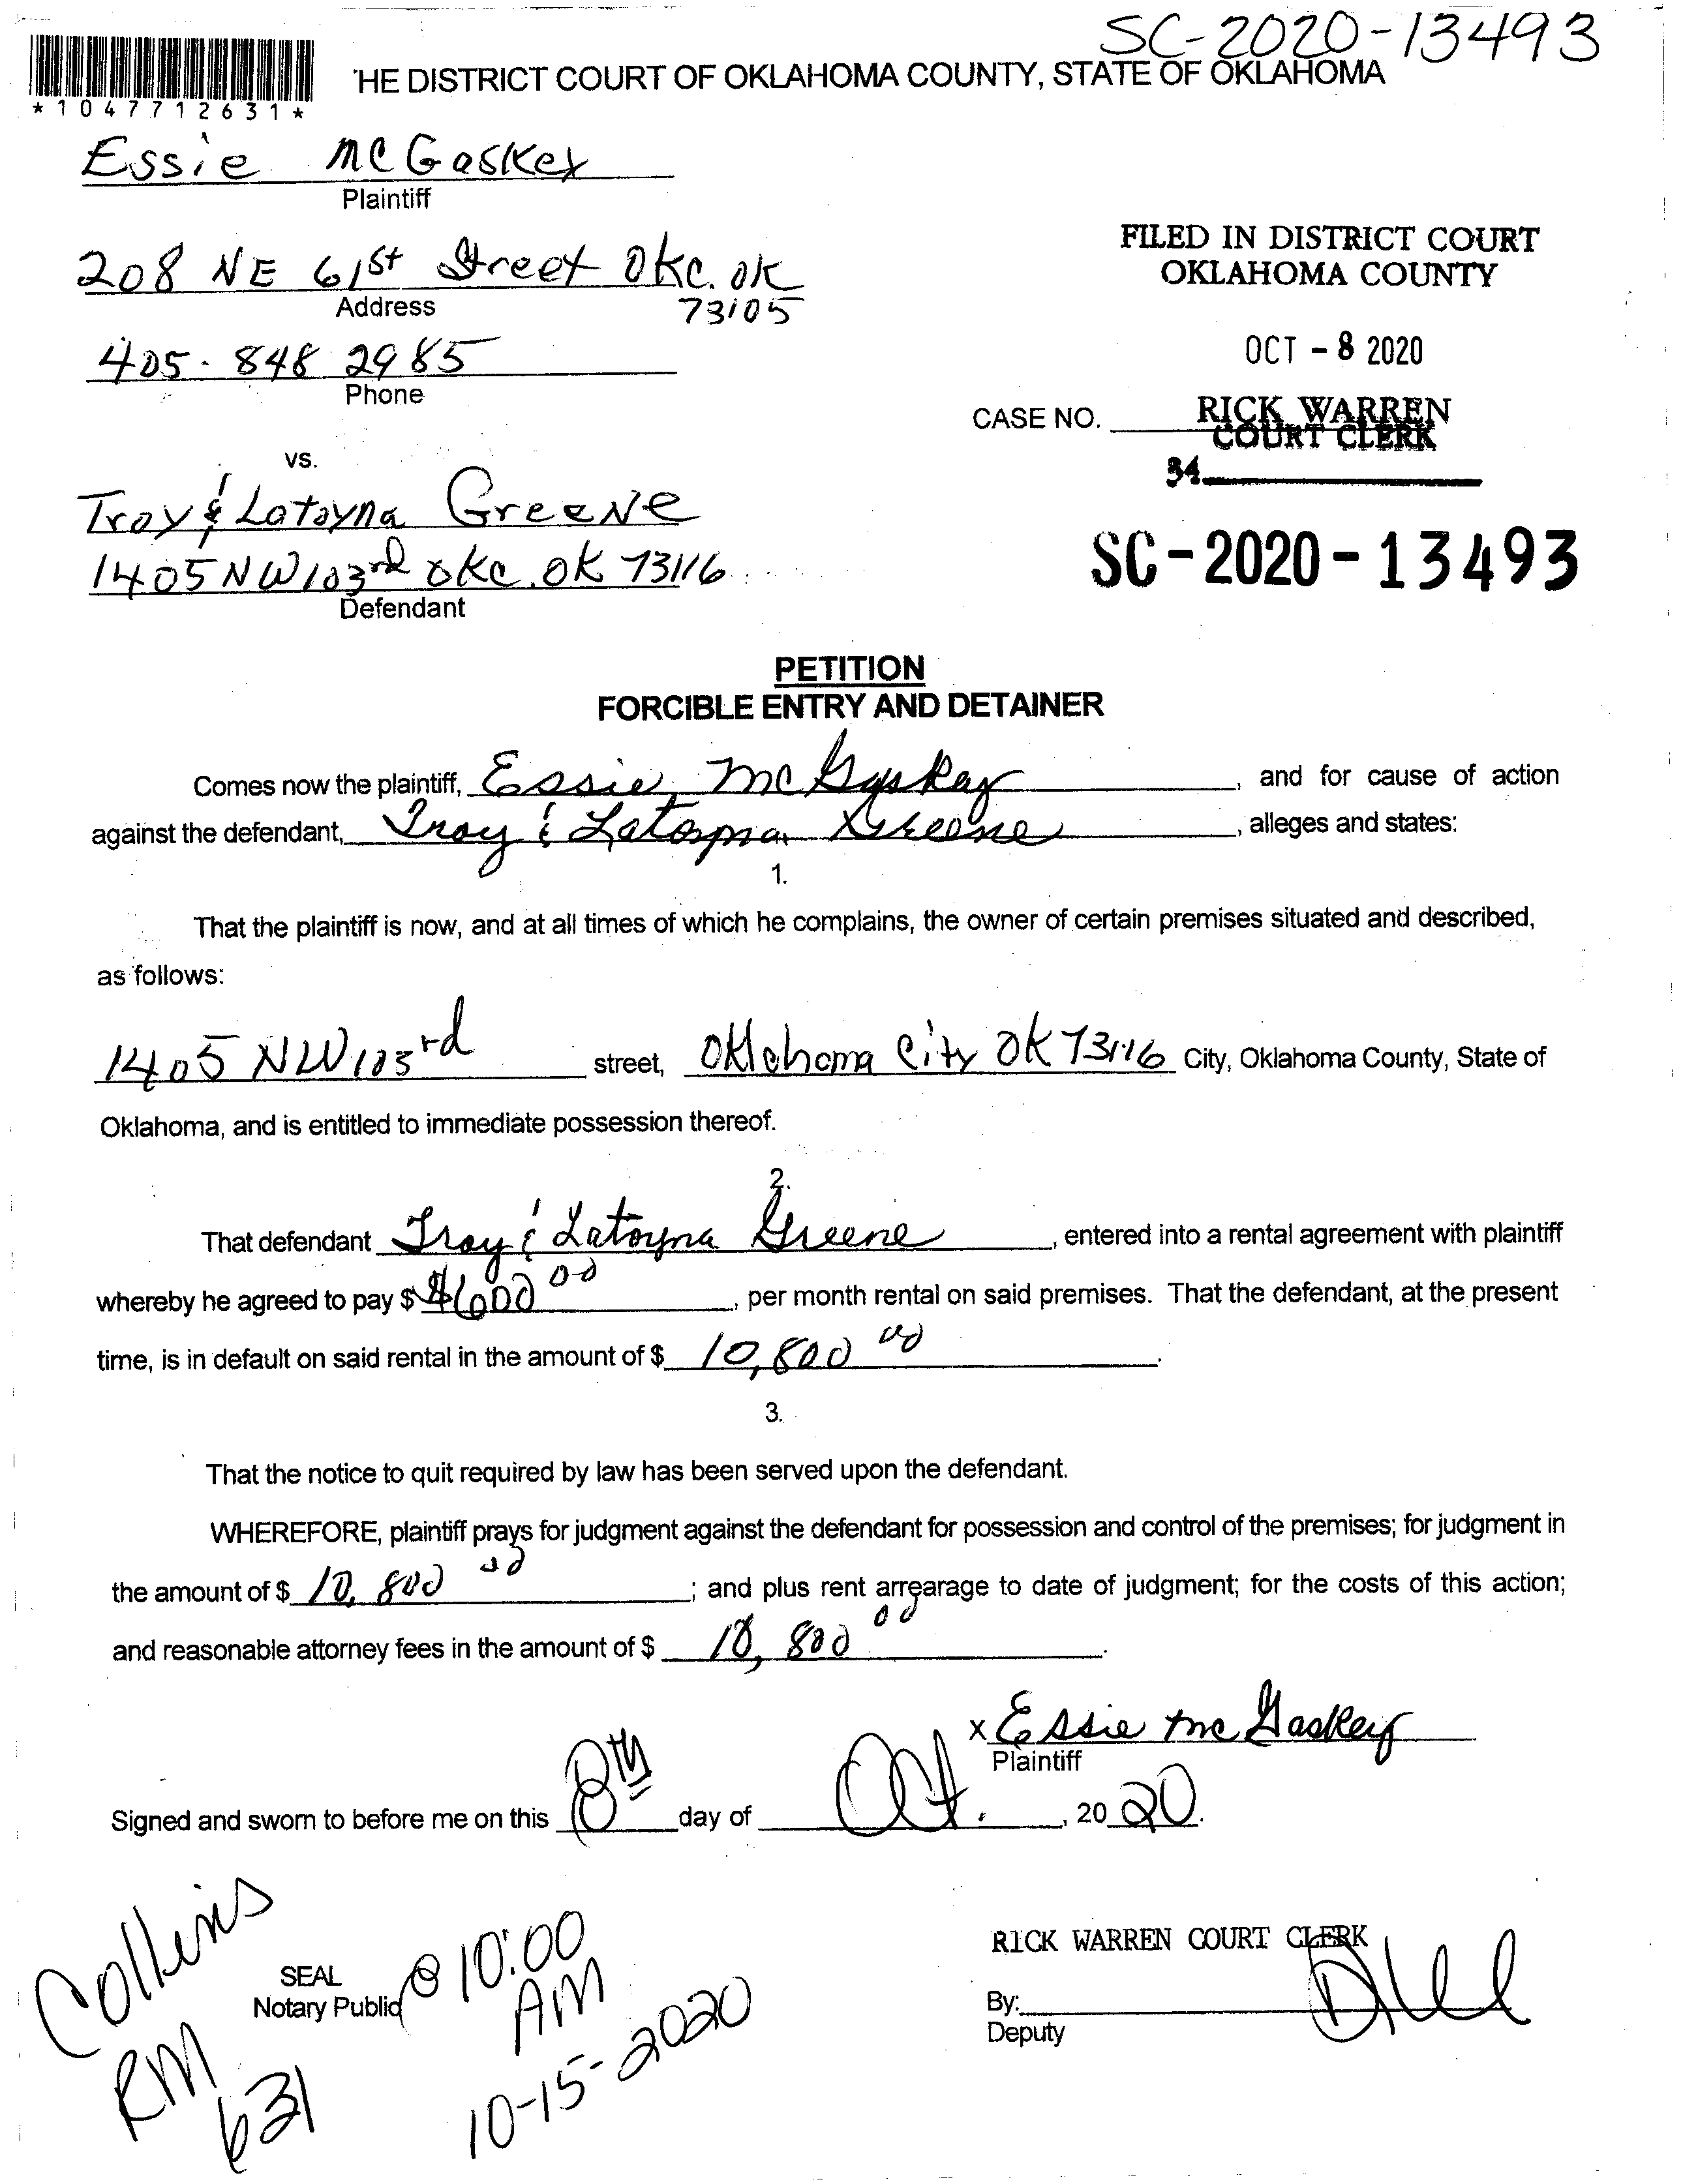 SC-2020-13493
HE DISTRICT COURT OF OKLAHOMA COUNTY, STATE OF OKLAHOMA
*1047712631*
Essie McGaskey
Plaintiff
208 NE 61st Street OKC. OK
Address
73105
405-848 2985
Phone
FILED IN DISTRICT COURT
OKLAHOMA COUNTY
OCT - 8 2020
RICK WARREN
CASE NO.
COURT CLERK
34
vs.
Troy & Latoyna Greene
1405 NW 103rd OKC. OK 73116
Defendant
SC-2020-13493
PETITION
FORCIBLE ENTRY AND DETAINER
Comes now the plaintiff, Essie McGaskey, and for cause of action
against the defendant, Troy & Latoyna Greene, alleges and states:
1.
That the plaintiff is now, and at all times of which he complains, the owner of certain premises situated and described,
as follows:
1405 NW 103rd street, Oklahoma City OK 73116 City, Oklahoma County, State of
Oklahoma, and is entitled to immediate possession thereof.
2.
That defendant Troy & Latoyna Greene, entered into a rental agreement with plaintiff
whereby he agreed to pay $ $600 00, per month rental on said premises. That the defendant, at the present
time, is in default on said rental in the amount of $ 10,800 00.
3.
That the notice to quit required by law has been served upon the defendant.
WHEREFORE, plaintiff prays for judgment against the defendant for possession and control of the premises; for judgment in
the amount of $ 10,800 00; and plus rent arrearage to date of judgment; for the costs of this action;
and reasonable attorney fees in the amount of $ 10,800 00.
x Essie McGaskey
Plaintiff
Signed and sworn to before me on this 8th day of Oct., 2020.
Collins
RM
631
@ 10:00
AM
10-15-2020
SEAL
Notary Public
RICK WARREN COURT CLERK
By:
Deputy